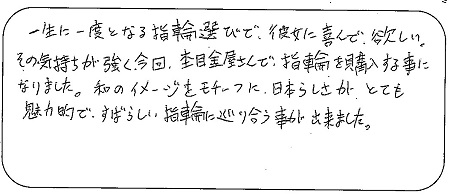 一生に一度となる指輪選びで、彼女に喜んで、欲しい。
その気持ちが強く今回、杢目金屋さんで、指輪を購入する事に
なりました。和のイメージをモチーフに、日本らしさが、とても
魅力的で、すばらしい指輪に巡り合う事が出来ました。